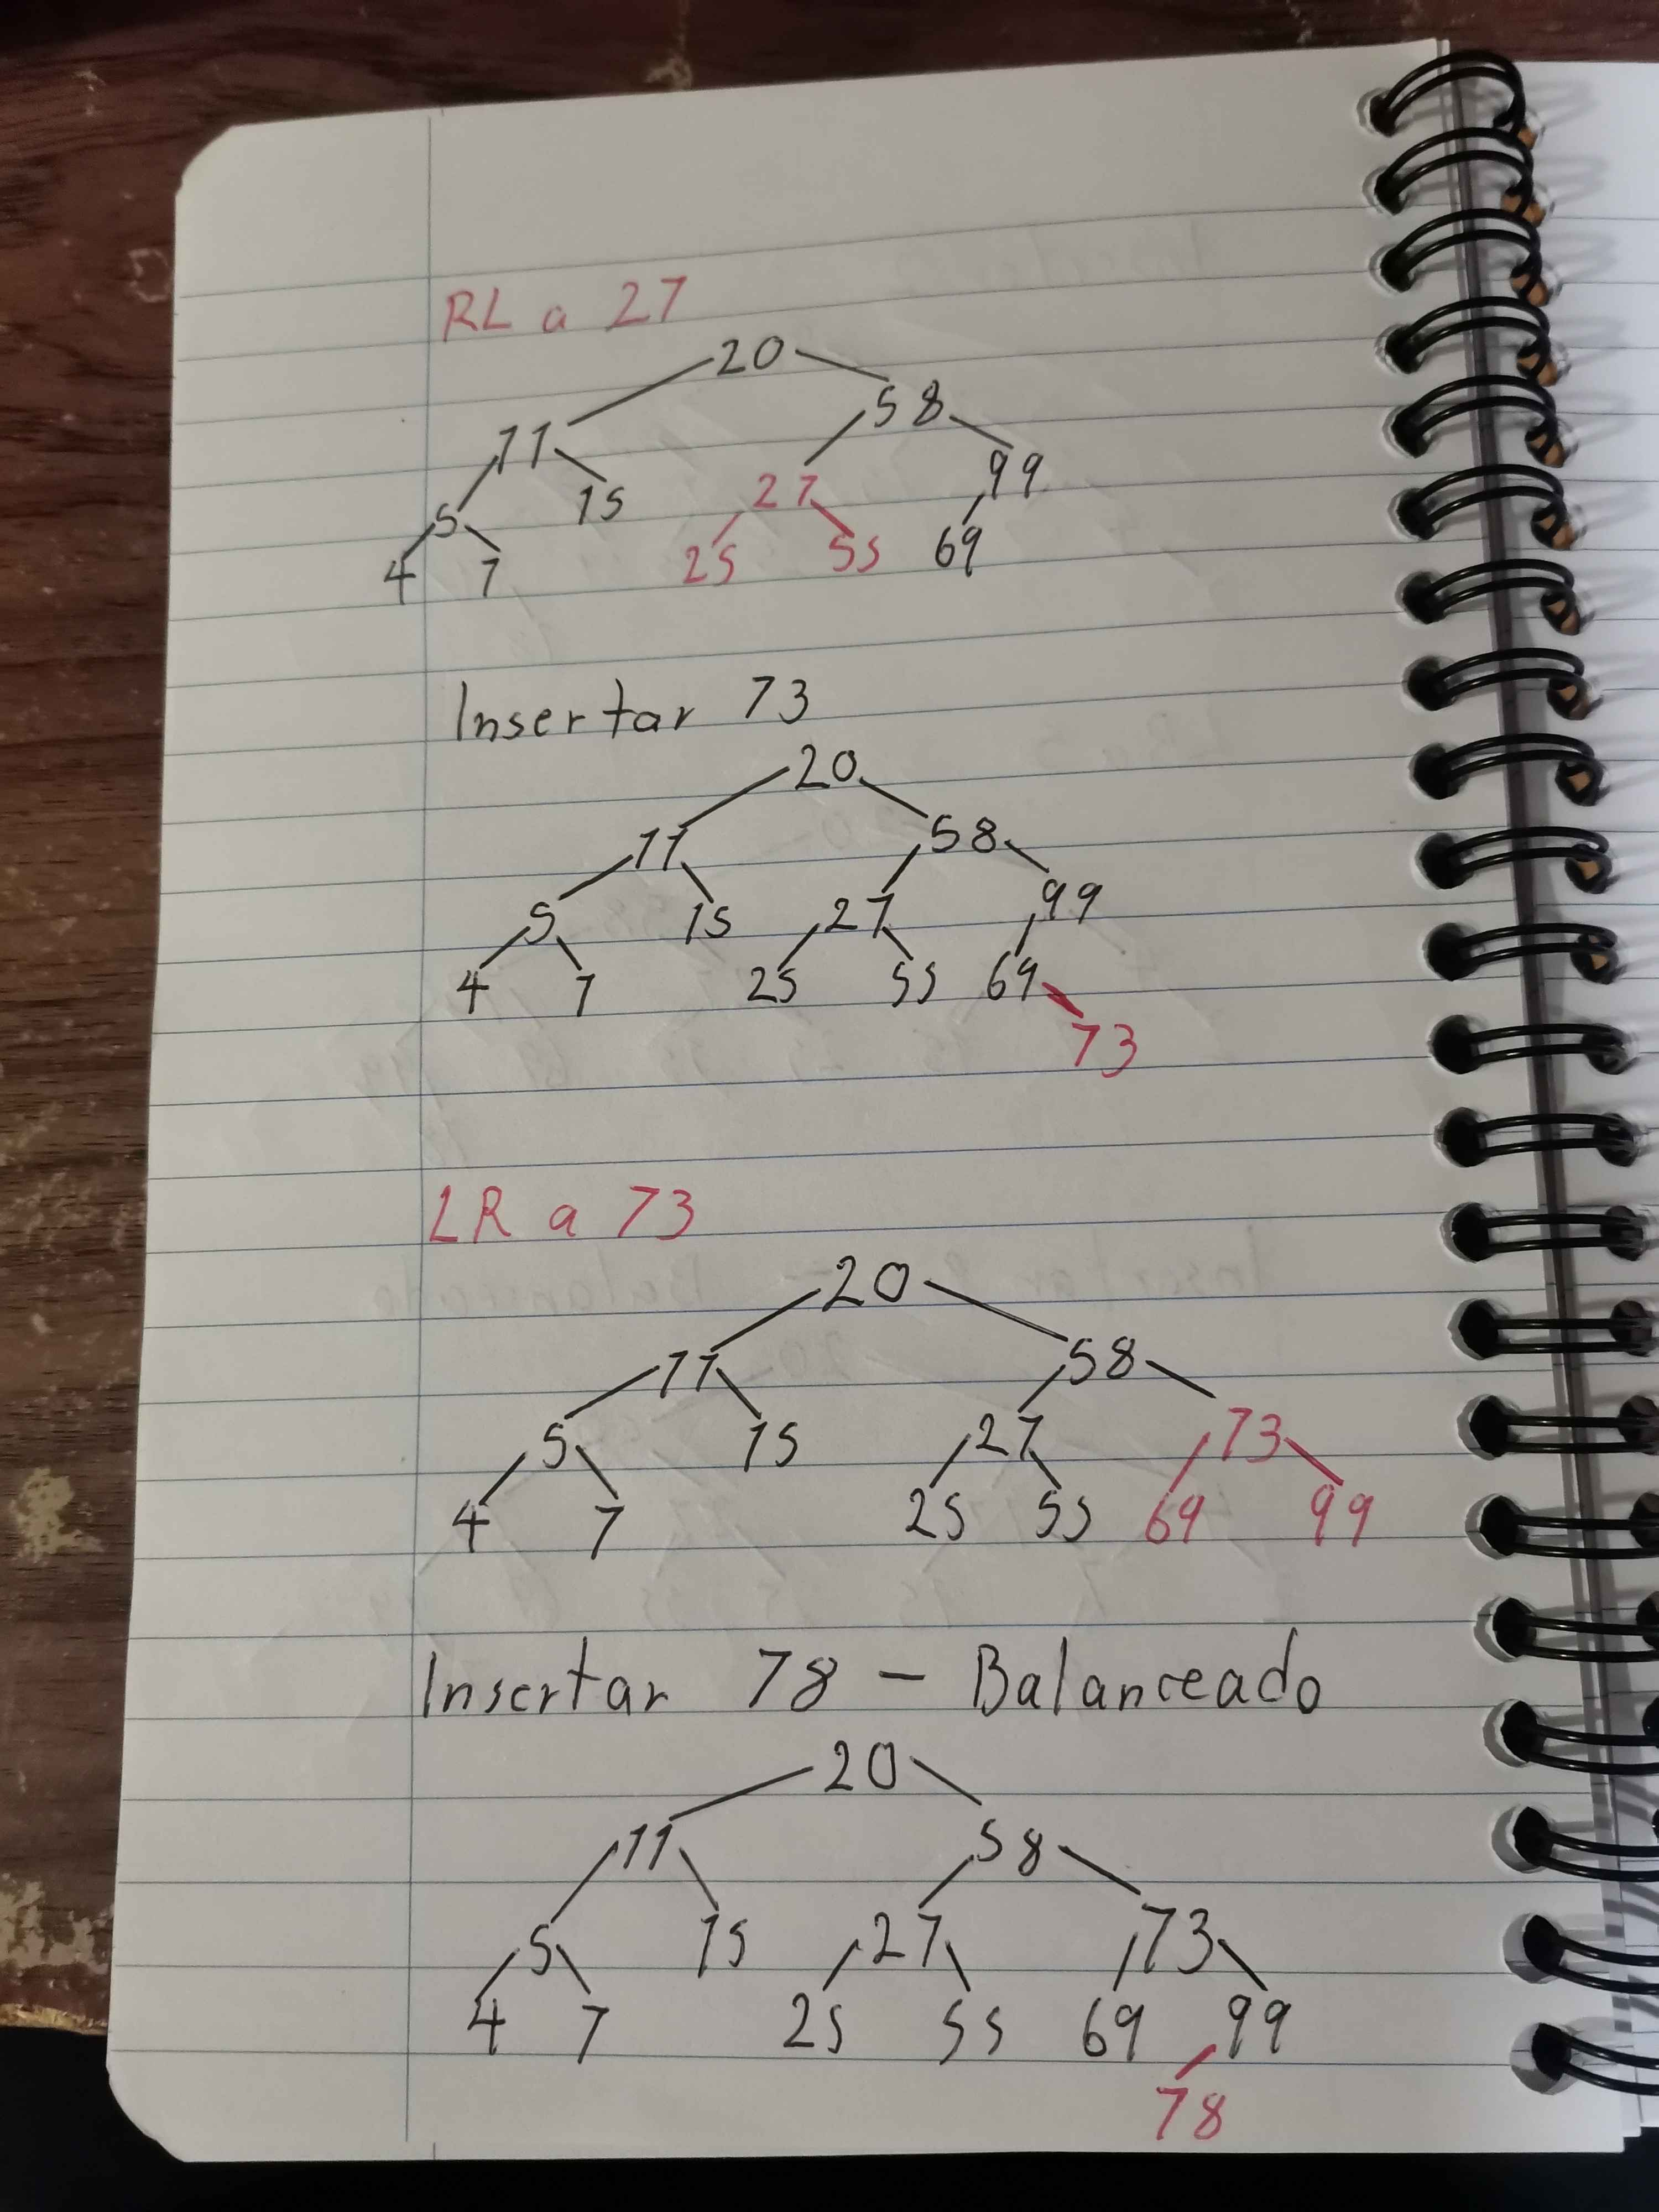 RL a 27
20
58
11
99
27
15
5
25 55 69
4 7
Insertar 73
20
11 58
5 15 27 99
4 7 25 55 69
73
LR a 73
20
11 58
5 15 27 73
4 7 25 55 69 99
Insertar 78 - Balanceado
20
11 58
5 15 27 73
4 7 25 55 69 99
78